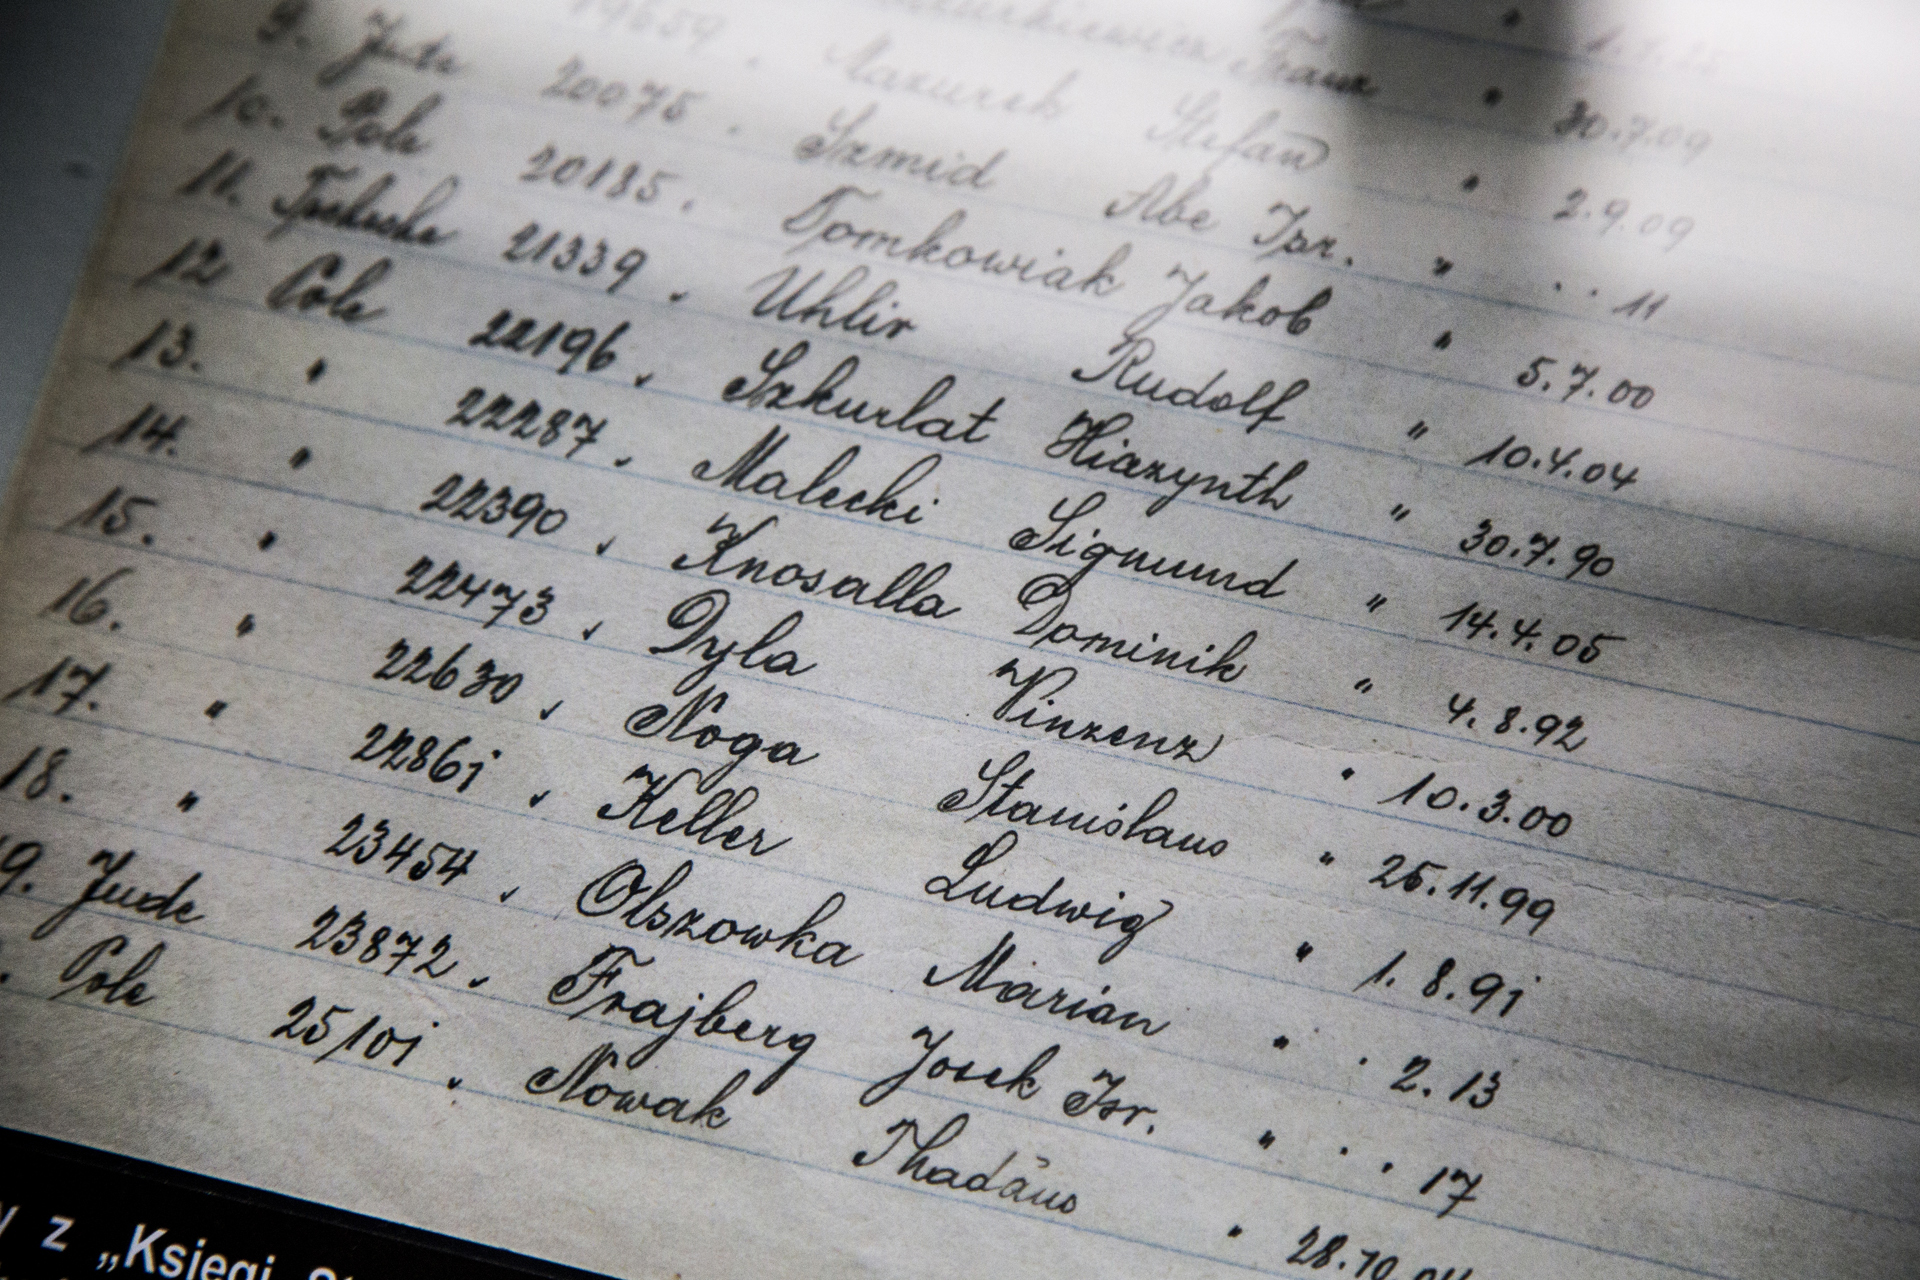 Franz " 30.7.09
19659. Mazurek Stefan " 2.9.09
9. Jude 20075. Szmid Abe Isr. " . . 11
10. Pole 20185. Tomkowiak Jakob " 5.7.00
11. Tscheche 21339. Uhlir Rudolf " 10.4.04
12. Pole 22196. Szkurlat Hiazynth " 30.7.90
13. " 22287. Malecki Sigmund " 14.4.05
14. " 22390. Knosalla Dominik " 4.8.92
15. " 22473. Dyla Vinzenz " 10.3.00
16. " 22630. Noga Stanislaus " 25.11.99
17. " 22861. Keller Ludwig " 1.8.91
18. " 23454. Olszowka Marian " . 2.13
19. Jude 23872. Frajberg Josek Isr. " . . 17
Pole 25101. Nowak Thadäus " 28.10.04
z „Księgi